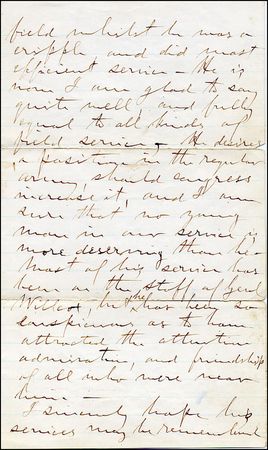 field whilst he was a
cripple and did most
efficient service – He is
now I am glad to say
quite well, and fully
equal to all kinds of
field service – He desires
a position in the regular
army, should congress
increase it, and I am
sure that no young
man in our service is
more deserving than he –
Most of his service has
been on the staff of Genl
Willcox, he has been so
conspicuous as to have
attracted the attention
admiration, and friendship
of all who were near
him –
I sincerely hope his
services may be remembered